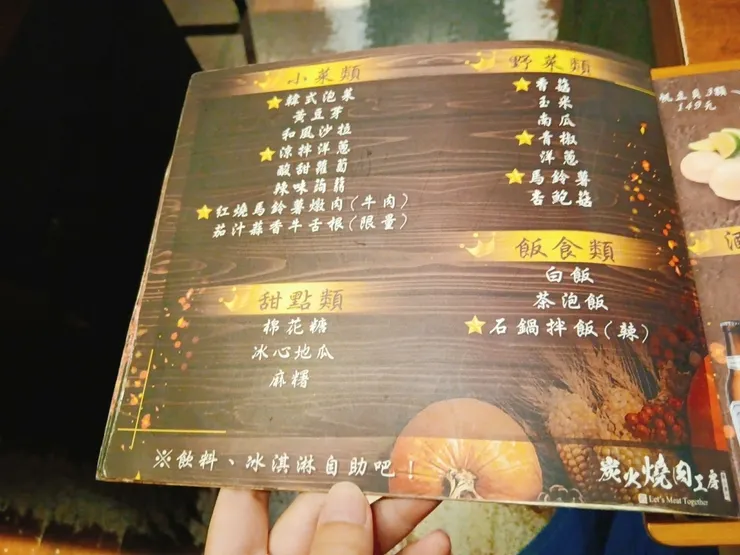 小菜類
韓式泡菜
黃豆芽
和風沙拉
涼拌洋蔥
酸甜蘿蔔
辣味蒟蒻
紅燒馬鈴薯燉肉(牛肉)
茄汁蒜香牛舌根(限量)
甜點類
棉花糖
冰心地瓜
麻糬
野菜類
香菇
玉米
南瓜
青椒
洋蔥
馬鈴薯
杏鮑菇
飯食類
白飯
茶泡飯
石鍋拌飯(辣)
※飲料、冰淇淋自助吧!
炭火燒肉工房
Let's Meat Together
帆立貝3顆
149元
酒